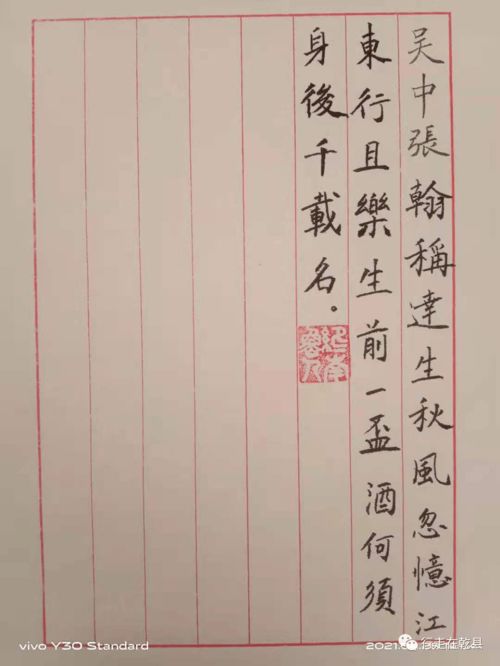 吴中張翰稱達生秋風忽憶江
東行且樂生前一盃酒何須
身後千載名.
vivo Y30 Standard
行走在乾县